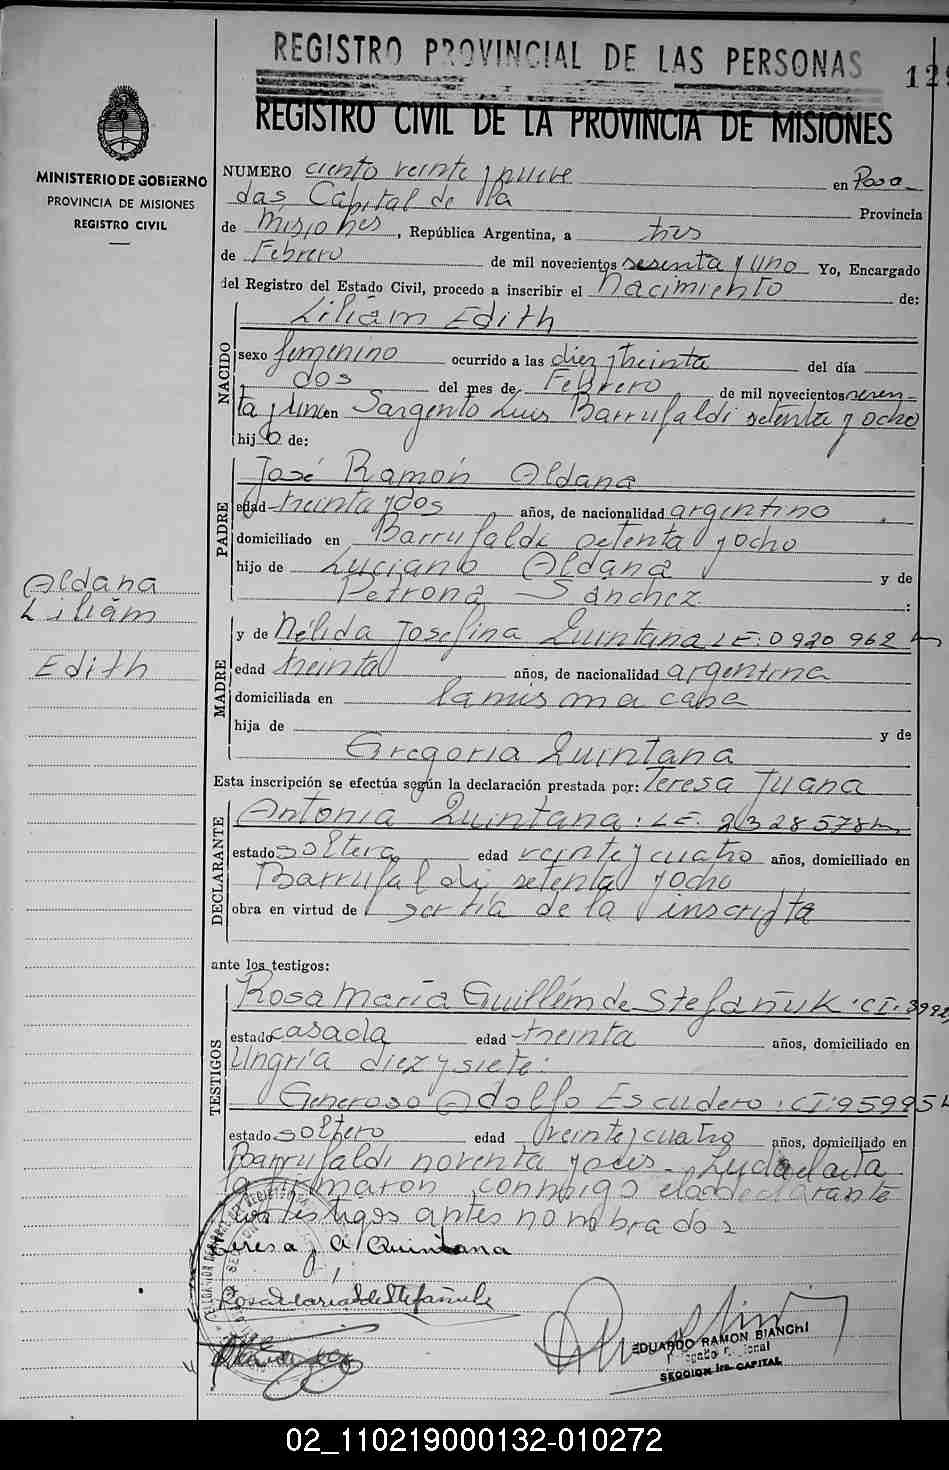 REGISTRO PROVINCIAL DE LAS PERSONAS
12
REGISTRO CIVIL DE LA PROVINCIA DE MISIONES
MINISTERIO DE GOBIERNO
PROVINCIA DE MISIONES
REGISTRO CIVIL
NUMERO ciento veinte y nueve en Posa-
das, Capital de la Provincia
de Misiones, República Argentina, a tres
de Febrero de mil novecientos sesenta y uno Yo, Encargado
del Registro del Estado Civil, procedo a inscribir el nacimiento de:
NACIDO
Liliám Edith
sexo femenino ocurrido a las diez y treinta del día
dos del mes de Febrero de mil novecientos sesen-
ta y uno en Sargento Luis Barrufaldi setenta y ocho
hij a de:
PADRE
José Ramón Aldana
edad treinta y dos años, de nacionalidad argentino
domiciliado en Barrufaldi setenta y ocho
hijo de Luciano Aldana y de
Petrona Sánchez :
MADRE
y de Nélida Josefina Quintana L E: 0 920 962
edad treinta años, de nacionalidad argentina
domiciliada en la misma casa
hija de y de
Gregoria Quintana
Esta inscripción se efectúa según la declaración prestada por: Teresa Juana
DECLARANTE
Antonia Quintana. L E. 2328578
estado soltera edad veinte y cuatro años, domiciliado en
Barrufaldi setenta y ocho
obra en virtud de ser tia de la inscripta
ante los testigos:
TESTIGOS
Rosa María Guillém de Stefañuk. C I: 3992
estado casada edad treinta años, domiciliado en
Ungría diez y siete.
Generoso Adolfo Escudero. CI: 95995
estado soltero edad veinte y cuatro años, domiciliado en
Barrufaldi noventa y dos. Leida el acta
la firmaron conmigo el declarante
los testigos antes nombrados
Teresa J A Quintana
Rosa Maria G de Stefañuk
EDUARDO RAMON BIANCHI
SECCION 1ra. CAPITAL
Aldana
Liliám
Edith
02_110219000132-010272